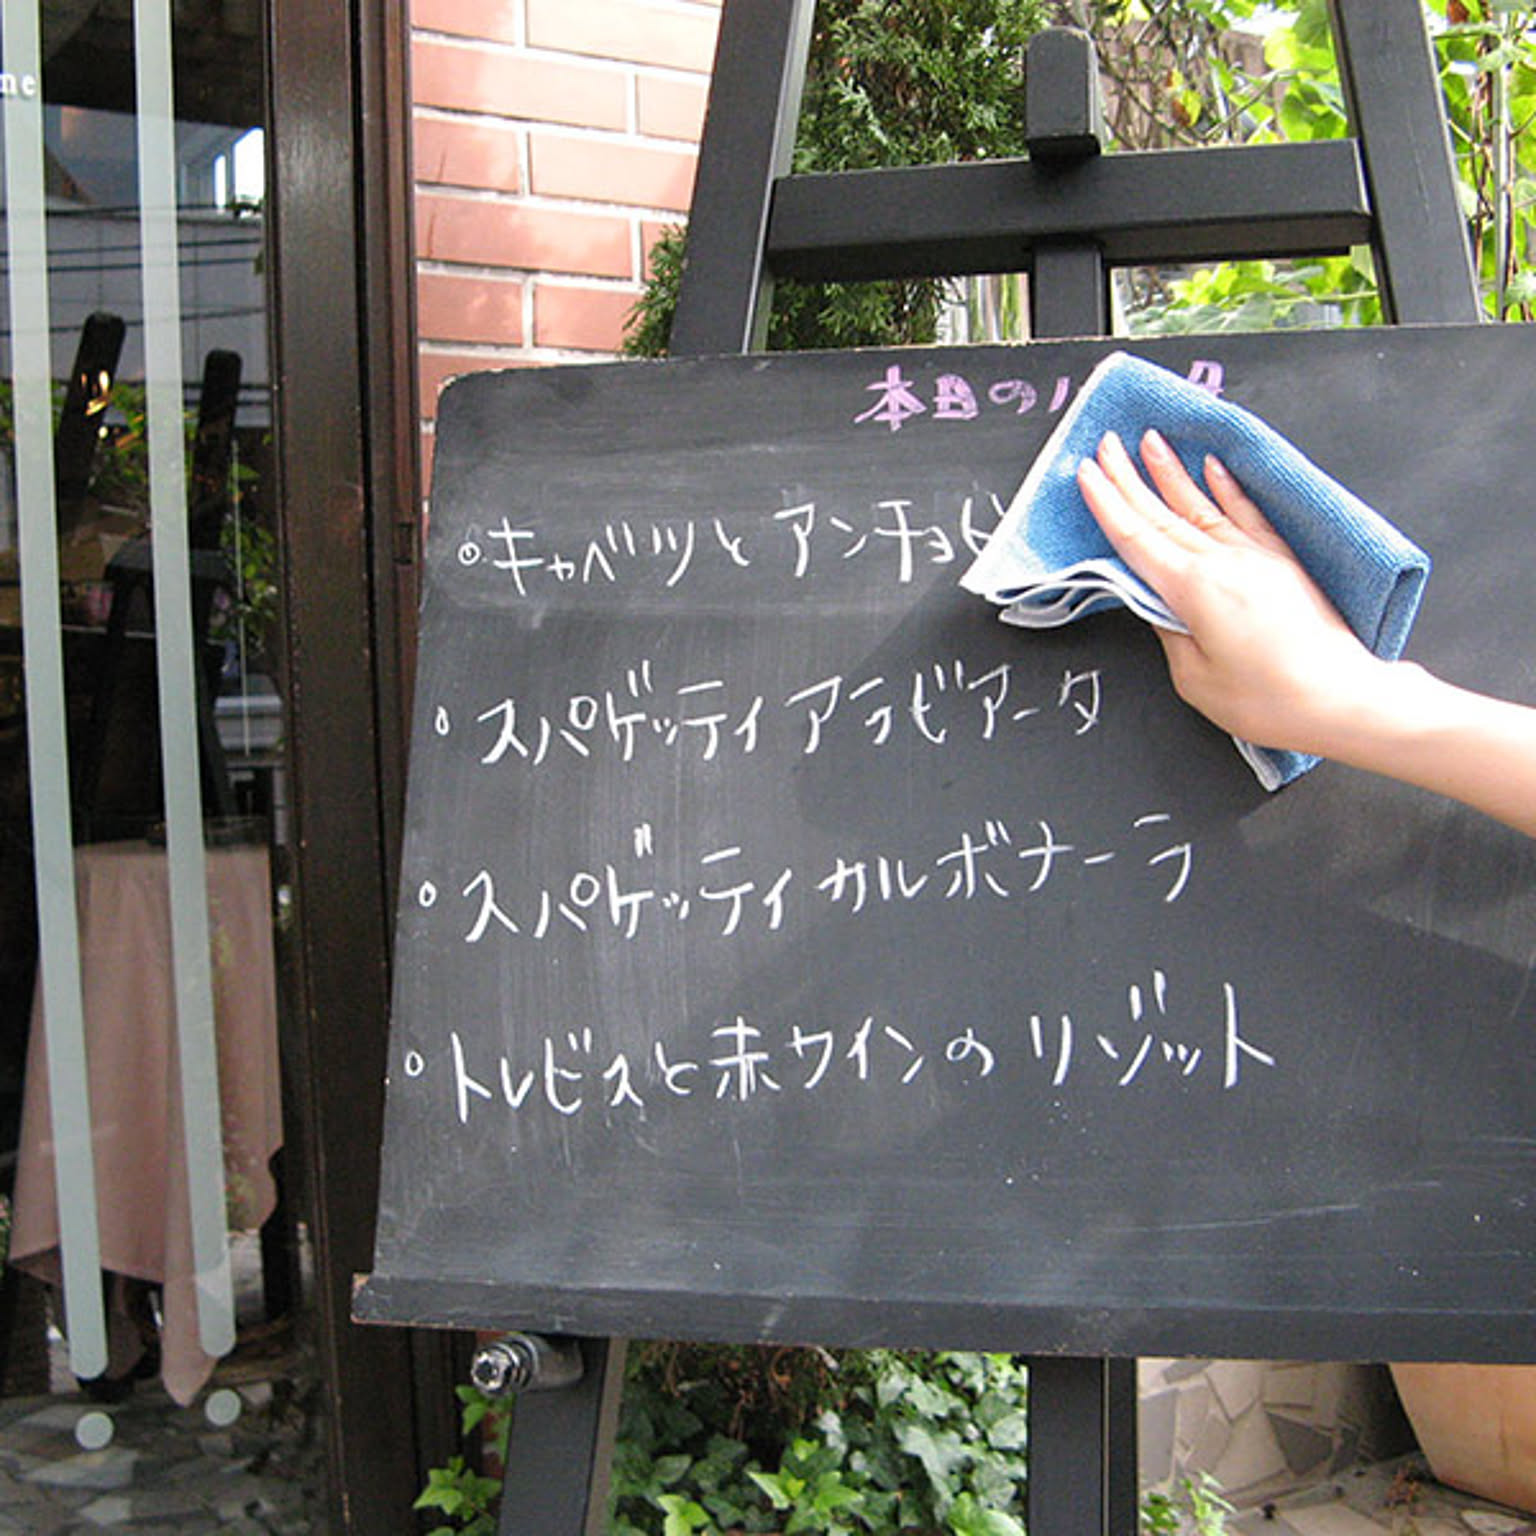 me
本日のパスタ
◎キャベツとアンチョビ
○スパゲッティアラビアータ
○スパゲッティカルボナーラ
○トレビスと赤ワインのリゾット